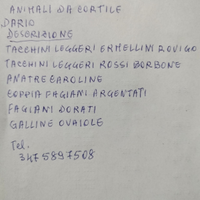 ANIMALI DA CORTILE
DARIO
DESCRIZIONE
TACCHINI LEGGERI ERMELLINI ROVIGO
TACCHINI LEGGERI ROSSI BORBONE
ANATRE CAROLINE
COPPIA FAGIANI ARGENTATI
FAGIANI DORATI
GALLINE OVAIOLE
Tel.
347 5897508